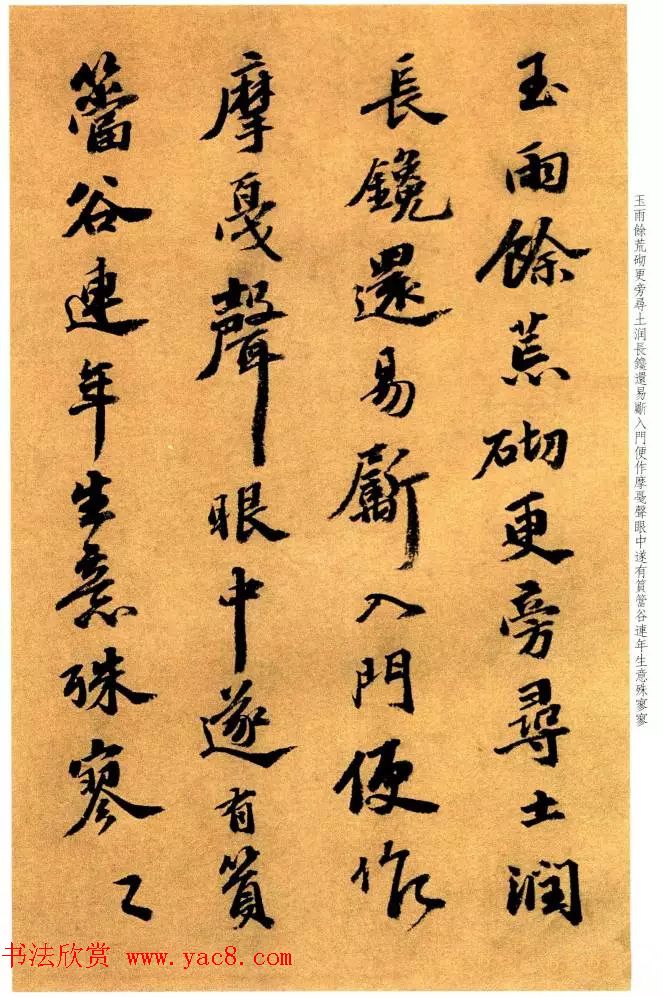 玉雨餘荒砌更旁尋土潤
長鑱還易斸入門便作
摩戛聲眼中遂有篔
簹谷連年生意殊寥〻
玉雨餘荒砌更旁尋土润長鑱還易斸入門便作摩戛聲眼中遂有篔簹谷連年生意殊寥寥
书法欣赏 www.yac8.com